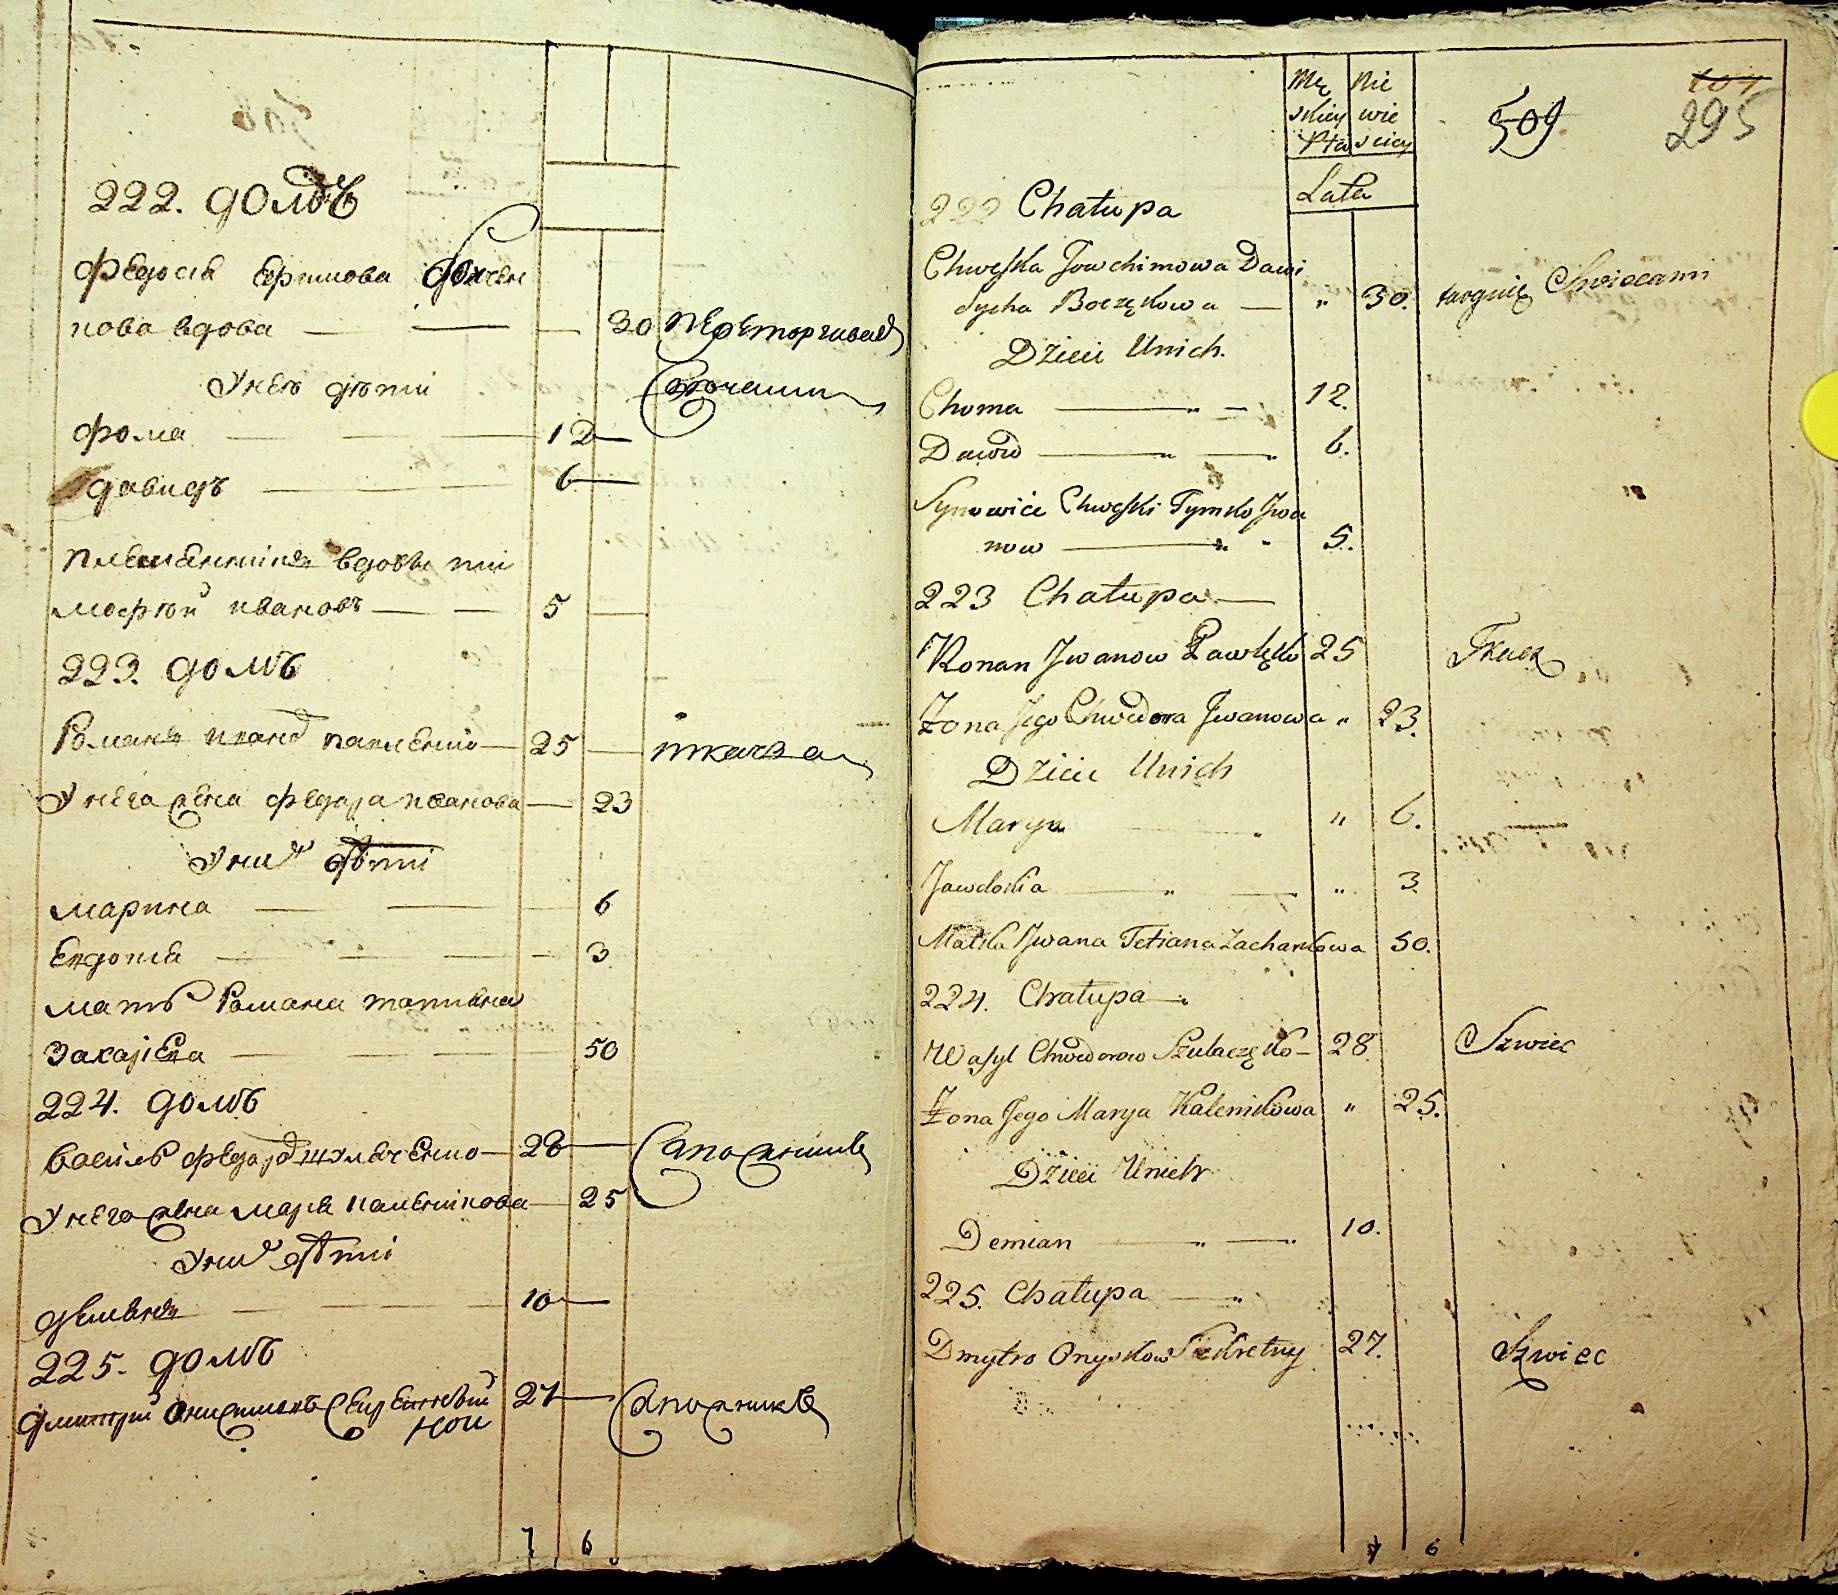 222. домъ
Федосія Ефимова
нова вдова — — — 30
У нее дѣти
Фома — — — 12 —
Давидъ — — — 6 —
вдовы ти
мофѣй Ивановъ — — 5 —
223. домъ
Романъ Иванов — 25 — ткачь
У него жена Федора Иванова — 23
У них дѣти
Марина — — — 6
Евдокія — — — 3
мать Романа татияна
Захарова — — — 50
224. домъ
Василь Федоров — 28 — Сапожникъ
У него жена Марія Каленикова — 25
У них дѣти
Демянъ — — — 10 —
225. домъ
Дмитрій 27 — Сапожникъ
7 6
Mę Nie
skiey wie
Płci sciey
509
104
295
Lata
222 Chałupa
Chweska Jowchimowa Dawi
dycha Boczękowa — " 30. targuię Swiecami
Dzieci Unich.
Choma — " — 12.
Dawid — " — " 6.
Synowiec Chweski Tymko Jwa
now — " " 5.
223 Chałupa —
Roman Jwanow Pawlęko 25 Tkacz
Żona Jego Chwedora Jwanowa " 23.
Dzieci Unich
Marya " " 6.
Jawdokia — " — " 3.
Matka Jwana Tetiana Zacharkowa 50.
224. Chałupa — "
Wasyl Chwedorow Szulaczęko — 28. Szwiec
Żona Jego Marya Kalenikowa " 25.
Dzieci Unich
Demian — " — " 10.
225. Chałupa — "
Dmytro Onyskow Sekretny 27. Szwiec
7 6